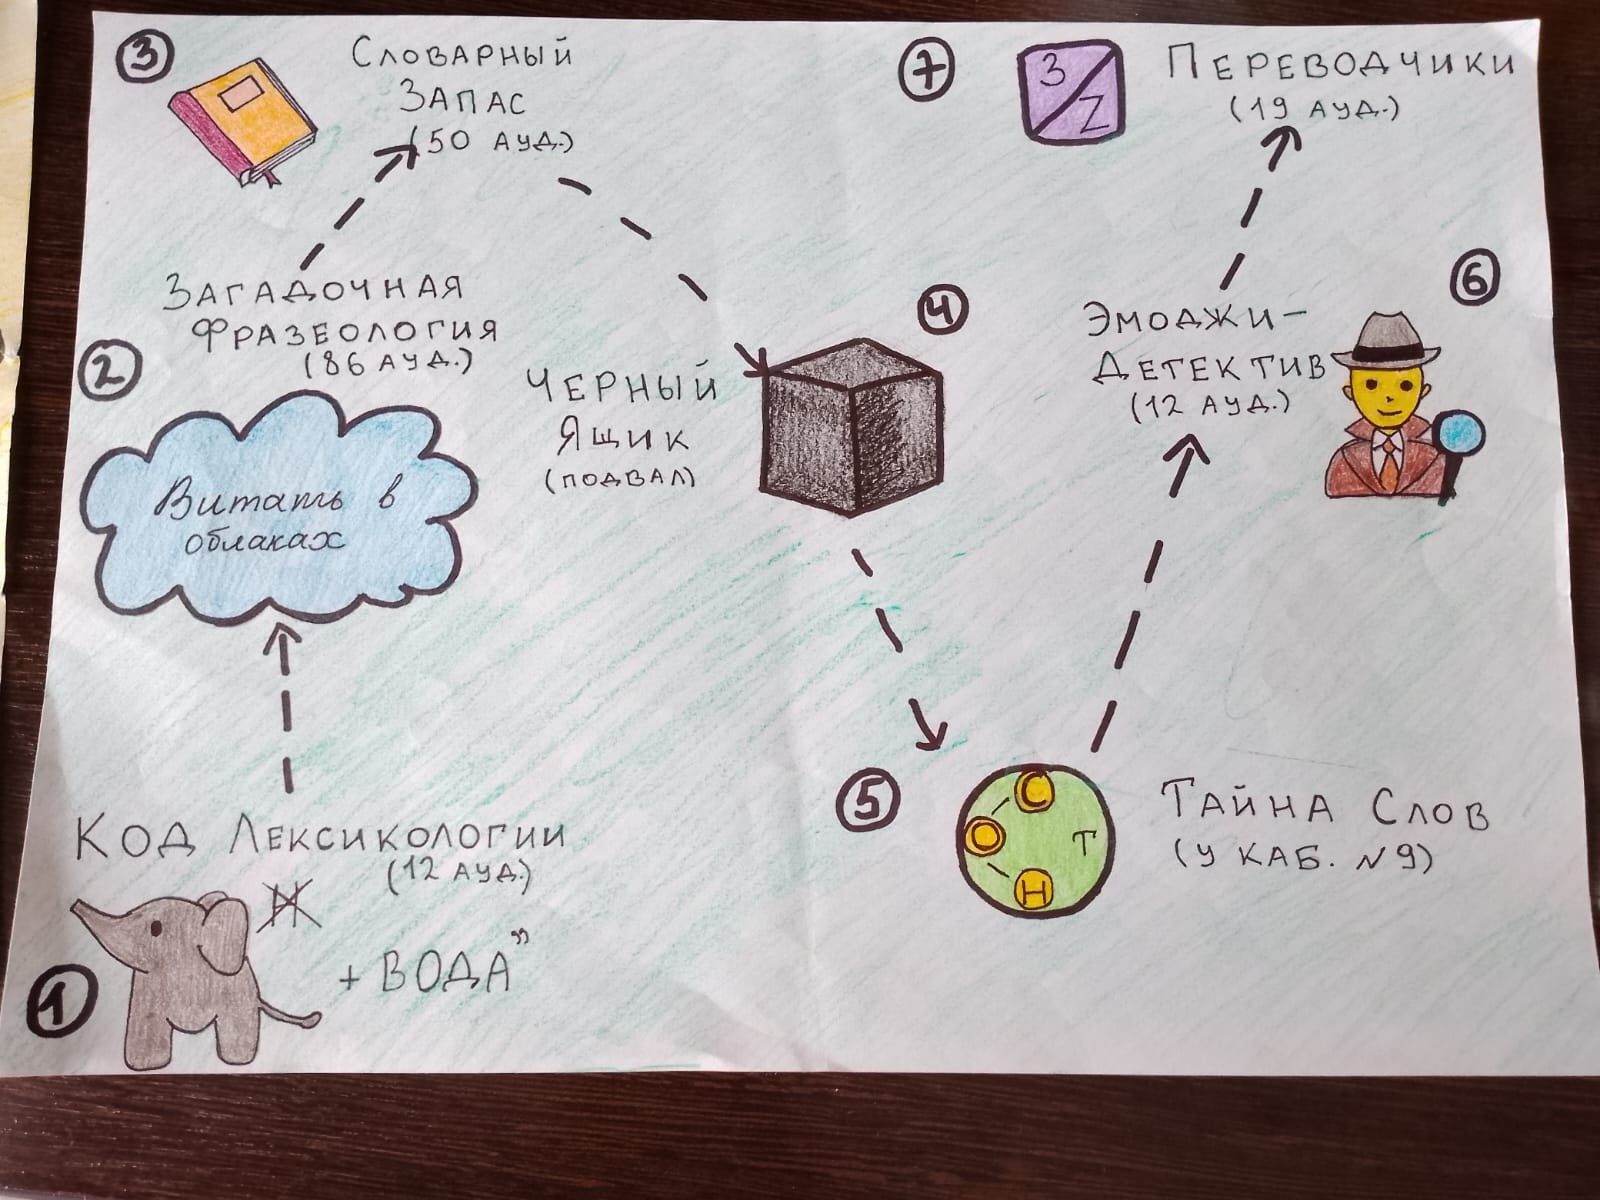 3
Словарный
Запас
(50 ауд.)
7
З/Z
Переводчики
(19 ауд.)
2
Загадочная
Фразеология
(86 ауд.)
Витать в
облаках
4
Черный
Ящик
(подвал)
6
Эмоджи-
Детектив
(12 ауд.)
1
Код Лексикологии
(12 ауд.)
Н
+ ВОДА”
5
С
О
Н
Т
Тайна Слов
(у каб. №9)